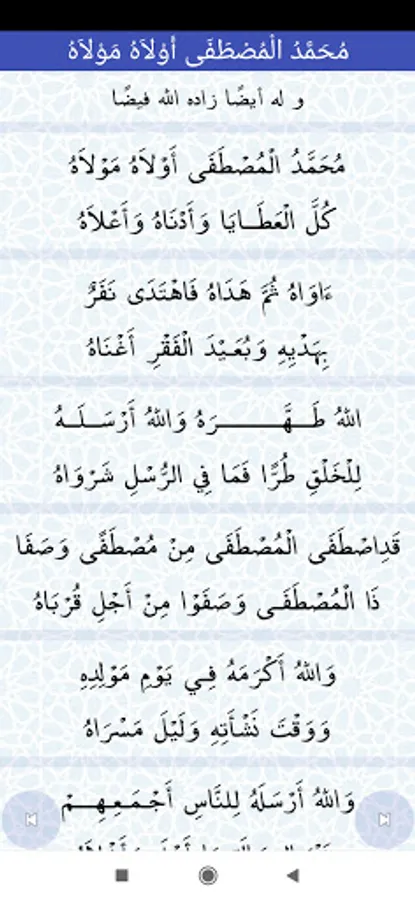 مُحَمَّدُ الْمُصْطَفَى أَوْلاَهُ مَوْلاَهُ
و له أيضًا زاده الله فيضًا
مُحَمَّدُ الْمُصْطَفَى أَوْلاَهُ مَوْلاَهُ
كُلَّ الْعَطَـايَا وَأَدْنَاهُ وَأَعْلاَهُ
ءَاوَاهُ ثُمَّ هَدَاهُ فَاهْتَدَى نَفَرٌ
بِهَدْيِهِ وَبُعَيْدَ الْفَقْرِ أَغْنَاهُ
اللهُ طَــهَّـــــــرَهُ وَاللهُ أَرْسَــلَــهُ
لِلْخَلْقِ طُرًّا فَمَا فِي الرُّسْلِ شَرْوَاهُ
قَدِاصْطَفَى الْمُصْطَفَى مِنْ مُصْطَفًى وَصَفَا
ذَا الْمُصْطَفَـى وَصَفَوْا مِنْ أَجْلِ قُرْبَاهُ
وَاللهُ أَكْرَمَهُ فِـي يَوْمِ مَوْلِدِهِ
وَوَقْتَ نَشْأَتِهِ وَلَيْلَ مَسْرَاهُ
وَاللهُ أَرْسَلَهُ لِلنَّاسِ أَجْـمَـعِـهِــمْ